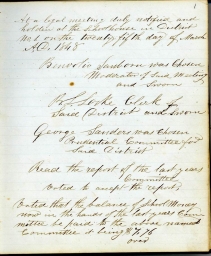 At a legal meeting duly notified and
holden at the schoolhouse in District
No 1 on the twenty fifth day of March
A.D. 1848
Sanborn was Chosen
Moderator of said meeting
and Sworn
Locke Clerk of
Said District and Sworn
George Sanders was Chosen
Prudential Committee for
Said District
Read the report of the last years
Committee
Voted to accept the report
Voted that the balance of School Money
now in the hands of the last years Com
mittee be paid to the above named
Committee it being $
over